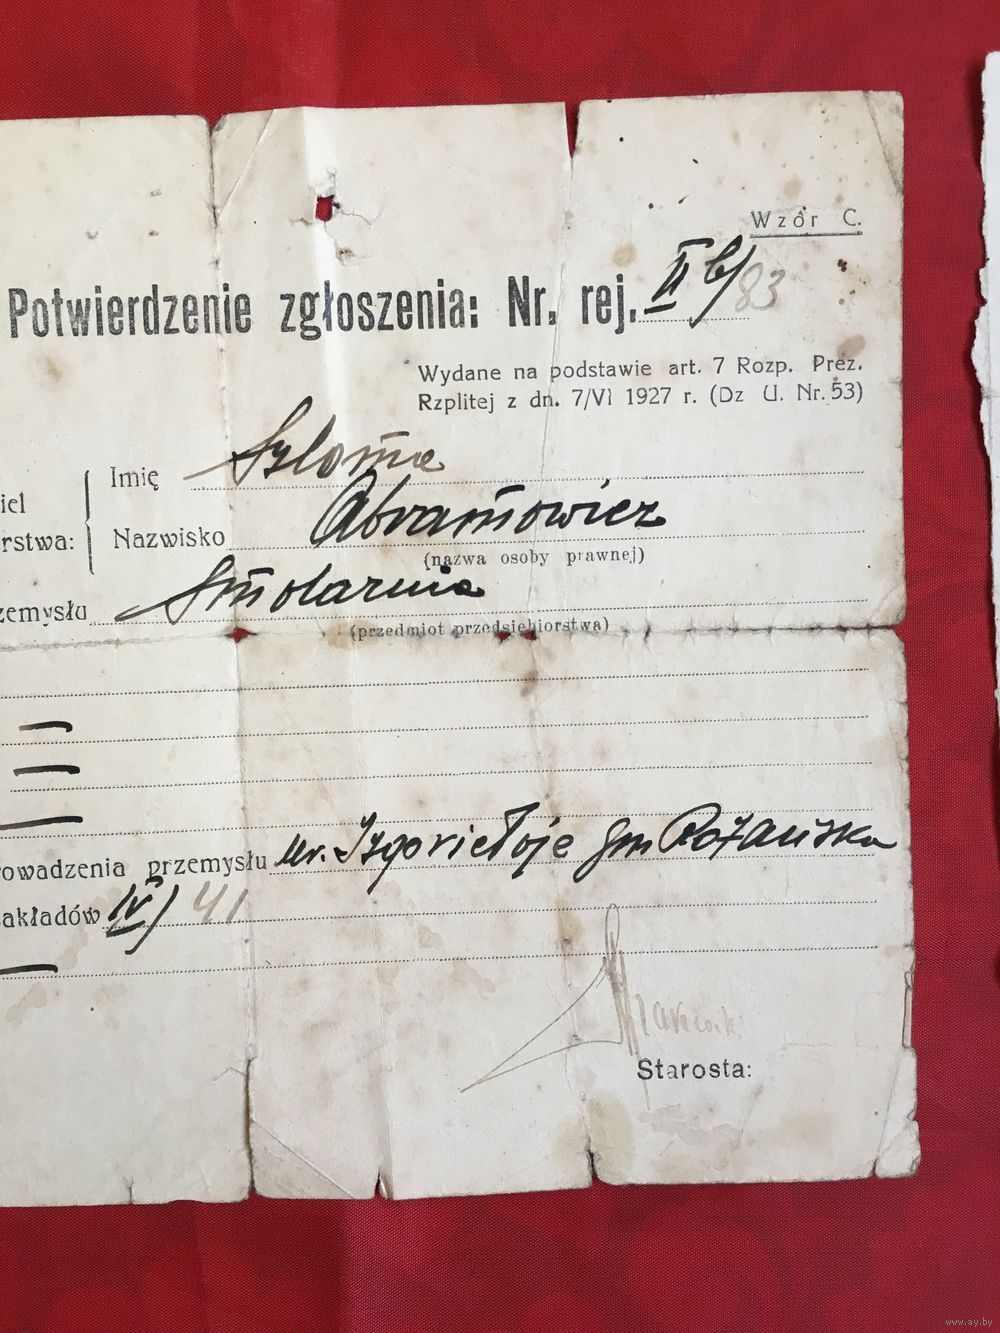 Wzór C.
Potwierdzenie zgłoszenia: Nr. rej. II b/83
Wydane na podstawie art. 7 Rozp. Prez.
Rzplitej z dn. 7/VI 1927 r. (Dz U. Nr. 53)
Imię Szloma
iel
rstwa: Nazwisko Abramowicz
(nazwa osoby prawnej)
zemysłu Smolarnia
(przedmiot przedsiębiorstwa)
owadzenia przemysłu ur. Izgoriełoje gm Różańska
akładów IV/41
Starosta:
www.ay.by